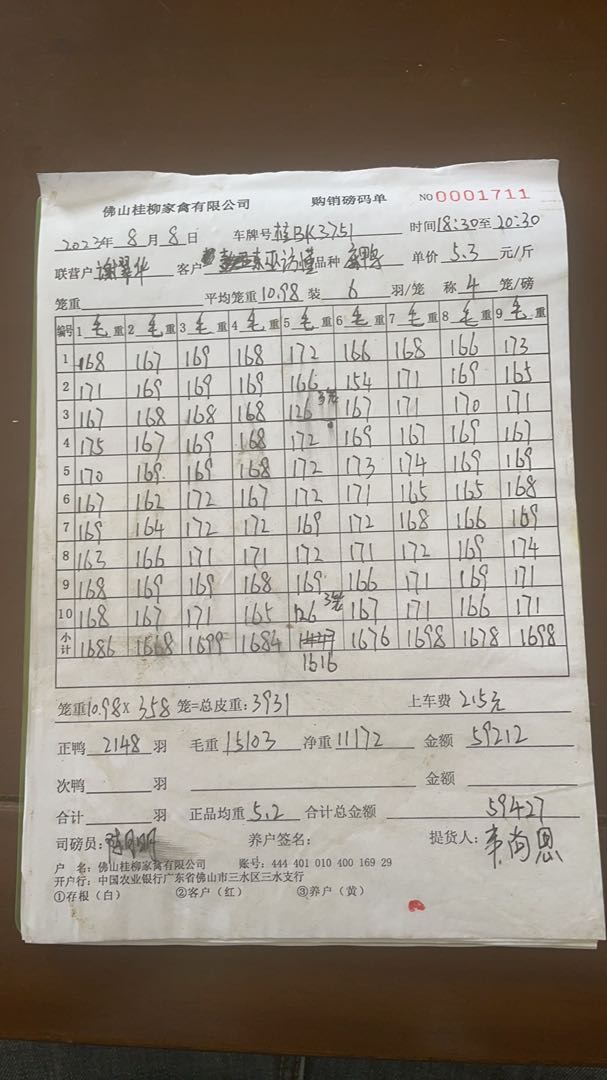 佛山桂柳家禽有限公司 购销磅码单 NO 0001711
2023年8月8日 车牌号 桂BK3751 时间18:30至20:30
联营户 谢翠华 客户 品种 单价 5.3 元/斤
笼重 平均笼重10.98 装 6 羽/笼 称 4 笼/磅
编号 1 毛重 2 毛重 3 毛重 4 毛重 5 毛重 6 毛重 7 毛重 8 毛重 9 毛重
1 168 167 169 168 172 166 168 166 173
2 171 169 169 169 166 154 171 169 165
3 167 168 168 168 126 3笼 167 171 170 171
4 175 167 169 168 172 169 167 169 167
5 170 169 169 168 172 173 174 169 169
6 167 162 172 167 172 171 165 165 168
7 169 164 172 172 169 172 168 166 169
8 163 166 171 171 172 171 172 169 174
9 168 169 169 168 169 166 171 169 171
10 168 167 171 165 126 3笼 167 171 166 171
小计 1686 1668 1699 1684 1676 1698 1678 1698
1616
笼重10.98X 358 笼=总皮重:3931 上车费 215元
正鸭 2148 羽 毛重 15103 净重 11172 金额 59212
次鸭 羽 金额
合计 羽 正品均重 5.2 合计总金额 59427
司磅员: 养户签名: 提货人: 韦尚恩
户 名: 佛山桂柳家禽有限公司 账号: 444 401 010 400 169 29
开户行: 中国农业银行广东省佛山市三水区三水支行
①存根（白） ②客户（红） ③养户（黄）